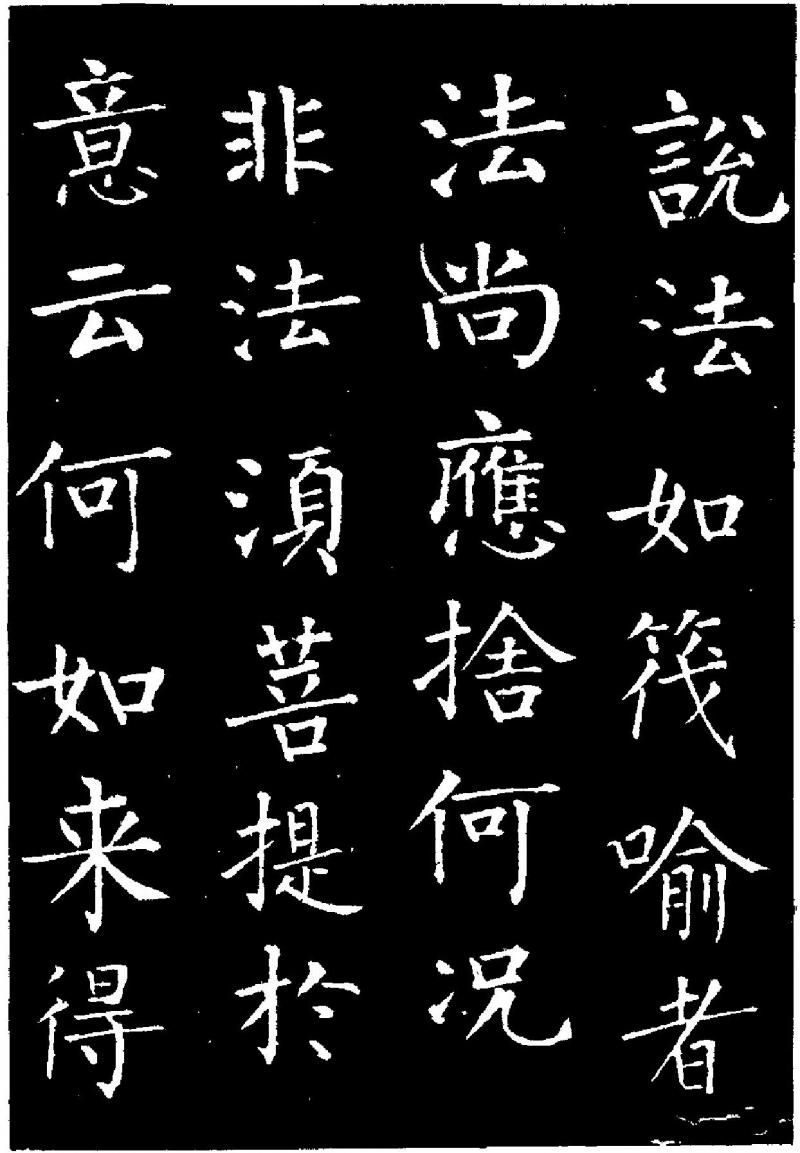 說法如筏喻者
法尚應捨何況
非法須菩提於
意云何如来得